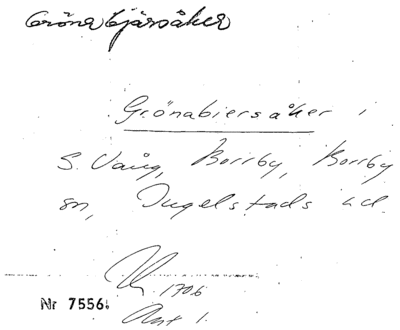 Gröna bjärsåker
Grönabiersåker i
S. Vång, Borrby, Borrby
sn, Ingelstads hd.
1706
Akt 1.
Nr 7556.